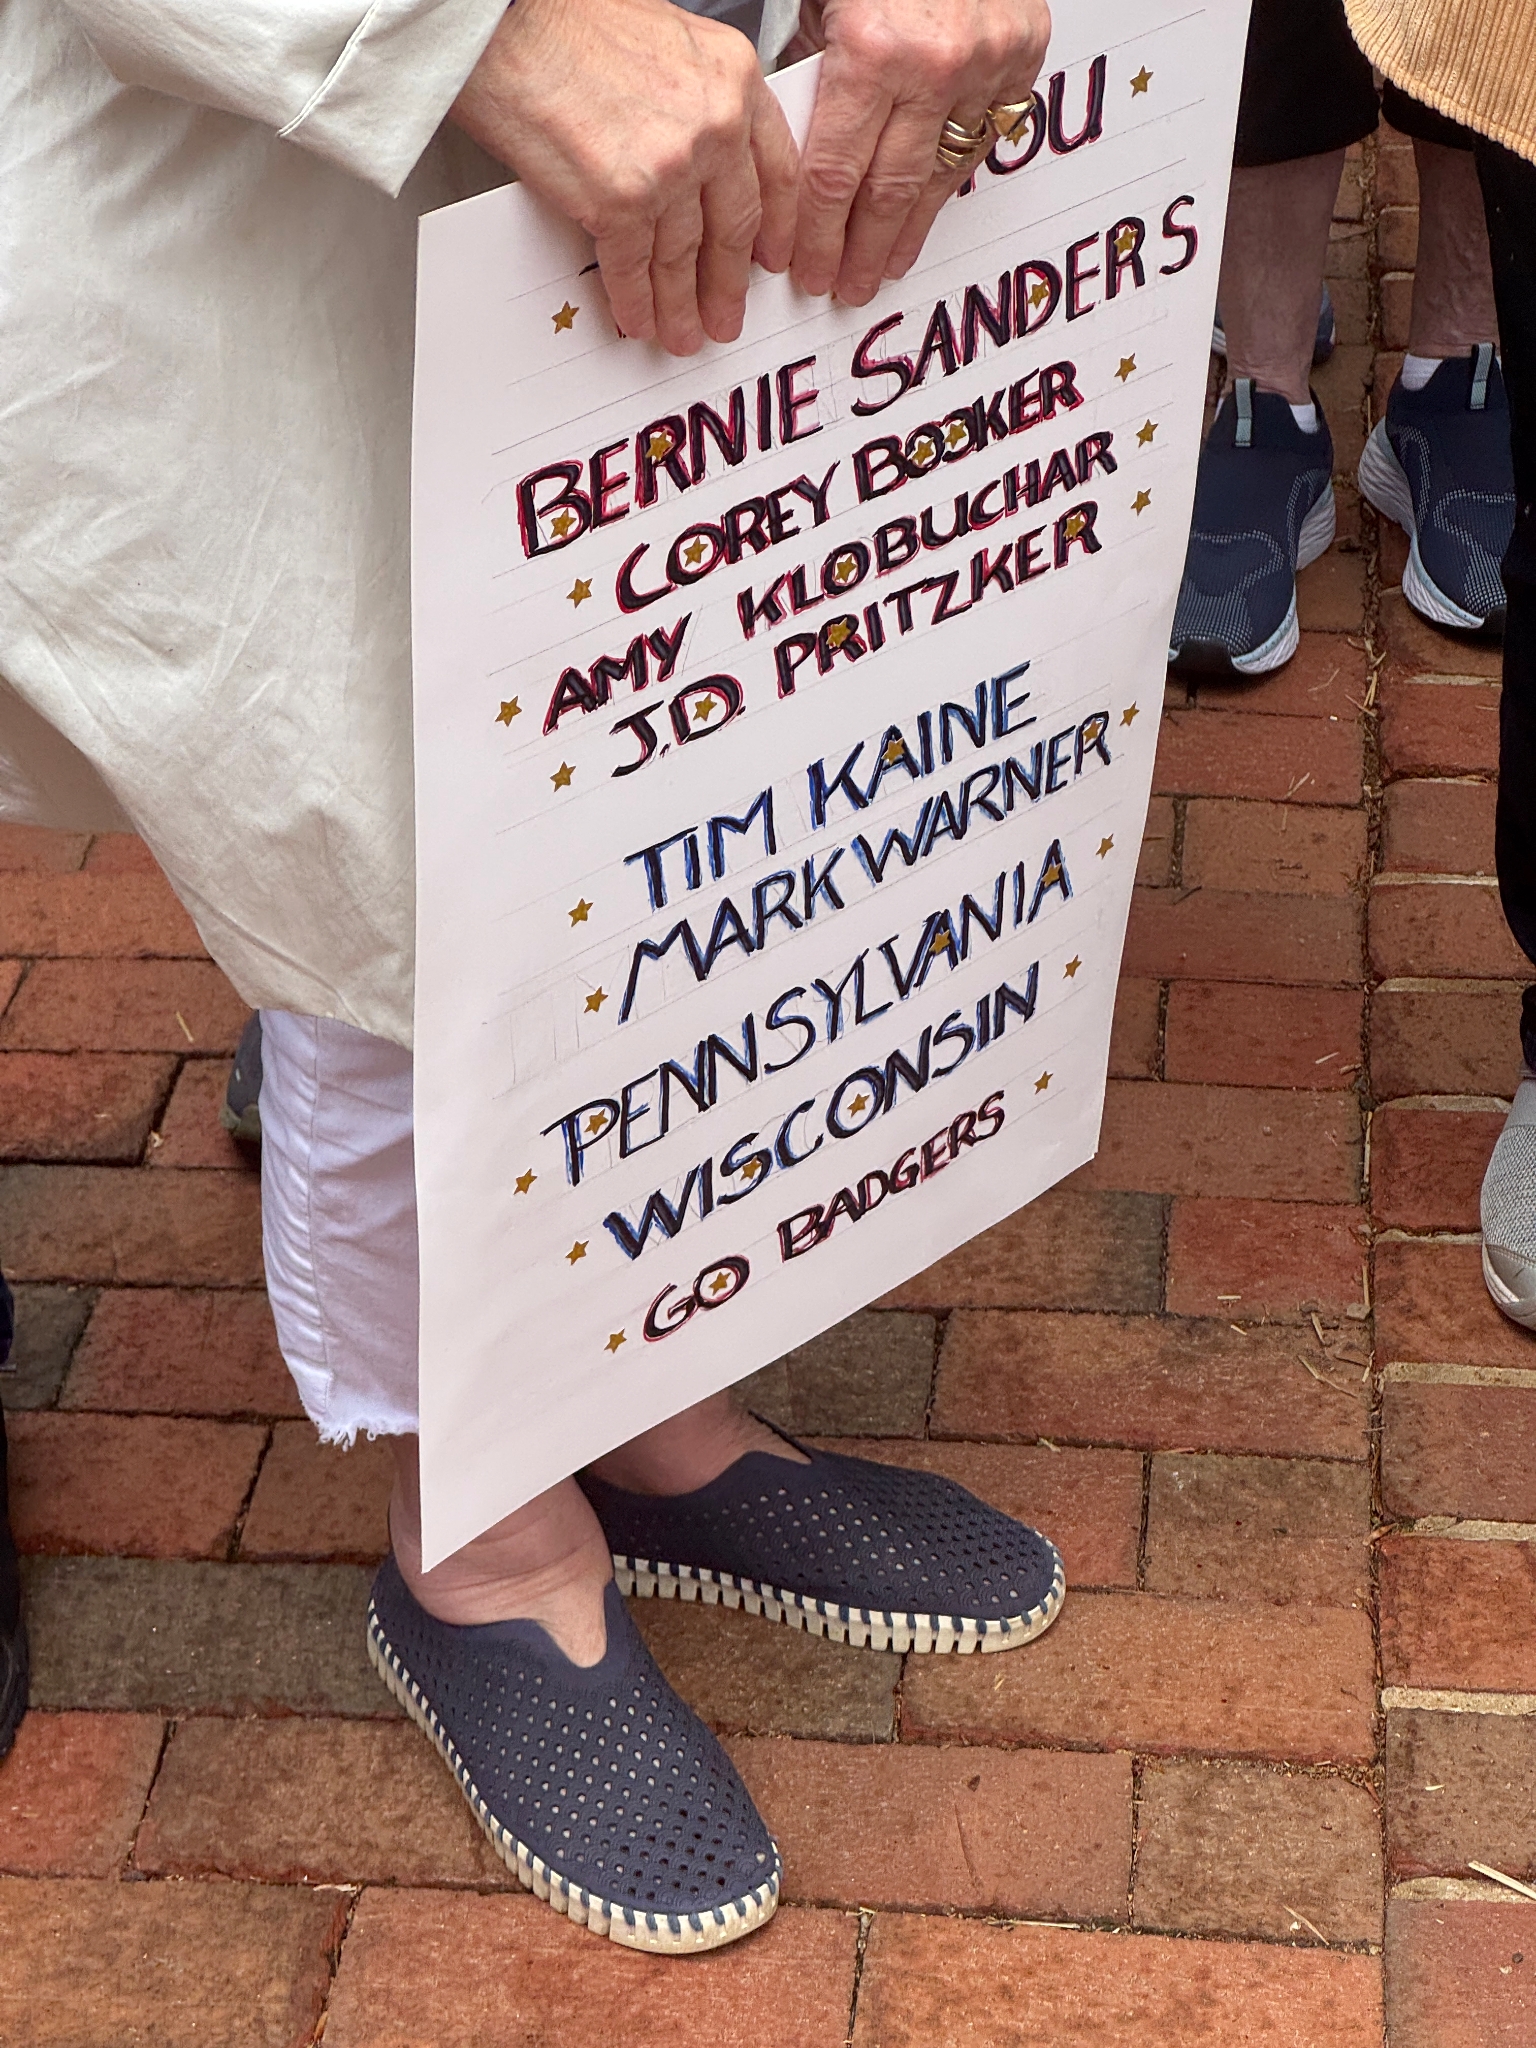 YOU
BERNIE SANDERS
COREY BOOKER
AMY KLOBUCHAR
J.D. PRITZKER
TIM KAINE
MARK WARNER
PENNSYLVANIA
WISCONSIN
GO BADGERS